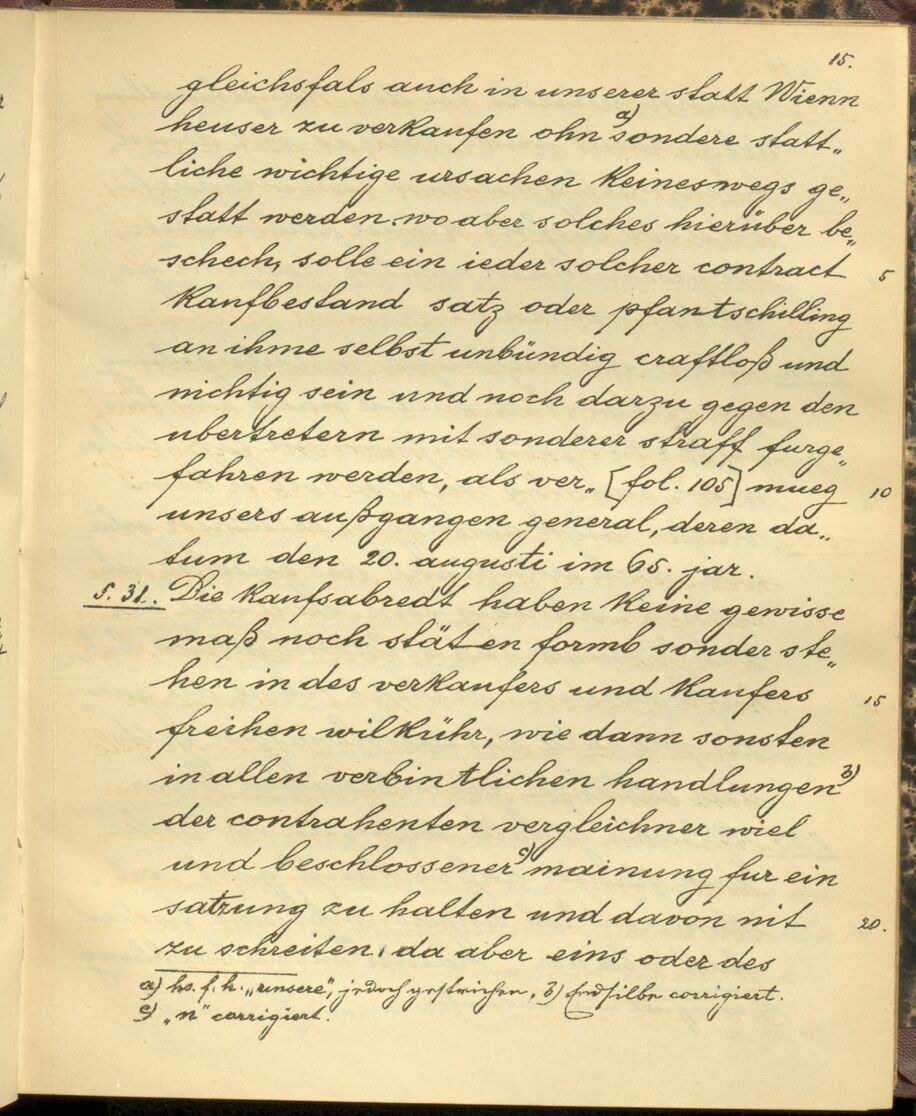 15.
gleichsfals auch in unserer statt Wienn
heuser zu verkaufen ohn a) sondere statt„
liche wichtige ursachen keineswegs ge„
statt werden. wo aber solches hierüber be„
schech, solle ein ieder solcher contract 5
kaufbestand satz oder pfantschilling
an ihme selbst unbündig craftloß und
nichtig sein und noch darzu gegen den
ubertretern mit sonderer straff furge„
fahren werden, als ver„ [fol. 105] mueg 10
unsers außgangen general, deren da„
tum den 20. augusti im 65. jar.
S. 31. Die kaufsabredt haben keine gewisse
maß noch stäten formb sonder ste„
hen in des verkaufers und kaufers 15
freihen wilkühr, wie dann sonsten
in allen verbintlichen handlungen b)
der contrahenten vergleichner wiel
und beschlossener c) mainung fur ein
satzung zu halten und davon nit 20.
zu schreiten. da aber eins oder des
a) hs. f. h. „unsere“, jedoch gestrichen. b) Endsilbe corrigiert.
c) „n“ corrigiert.